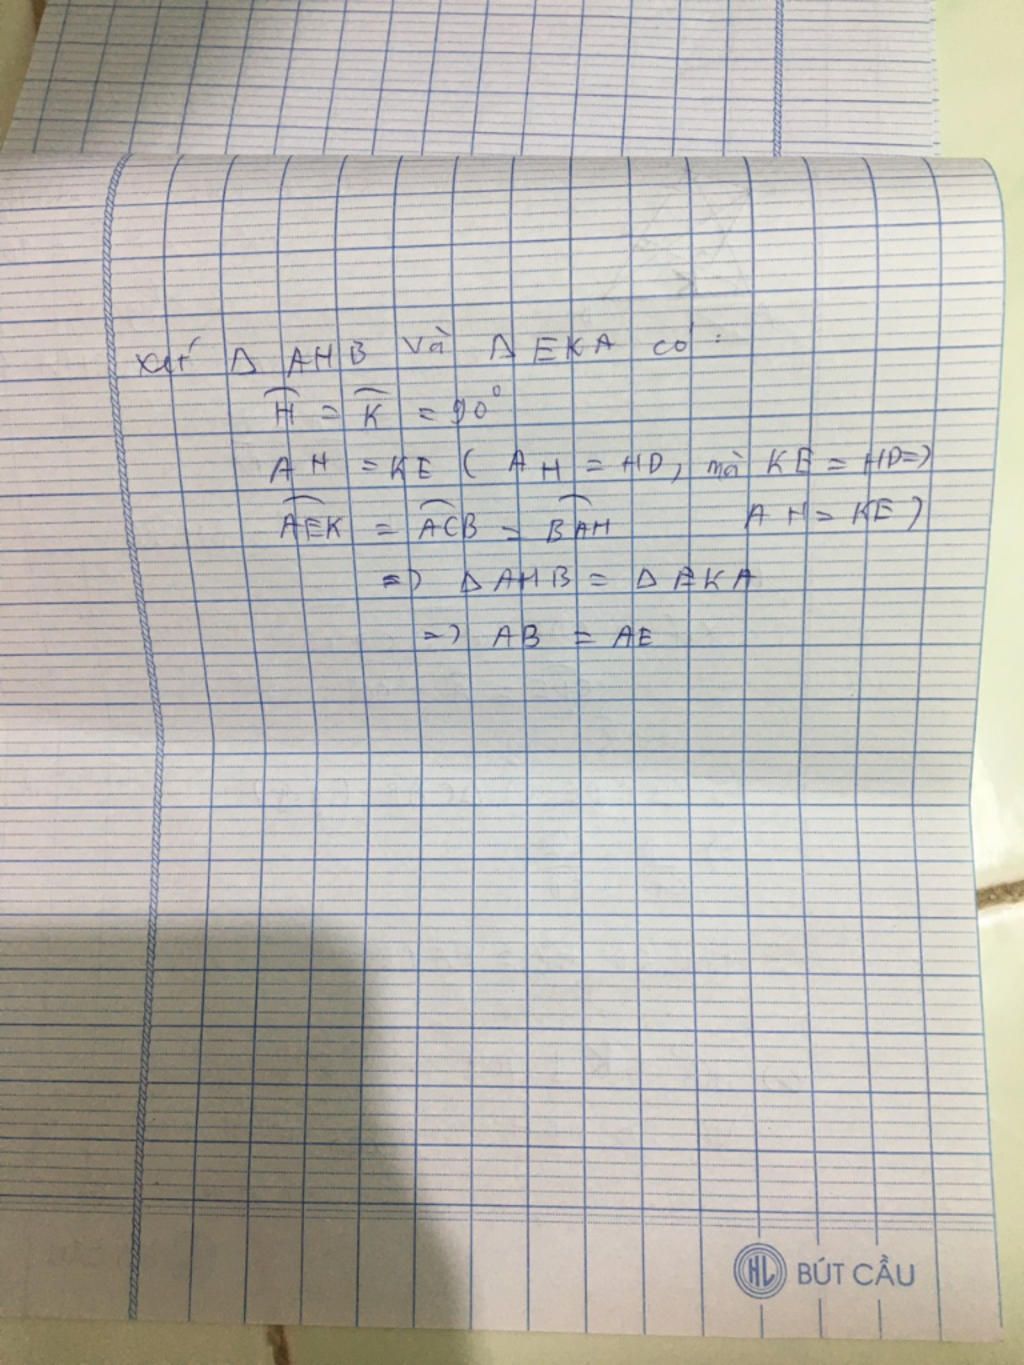 Xét Δ AHB và Δ EKA có:
Ĥ = K̂ = 90°
AH = KE ( AH = HD, mà KE = HD =)
AH = KE )
AEK = ACB = BAH
=) Δ AHB = Δ EKA
=) AB = AE
HL BÚT CẦU